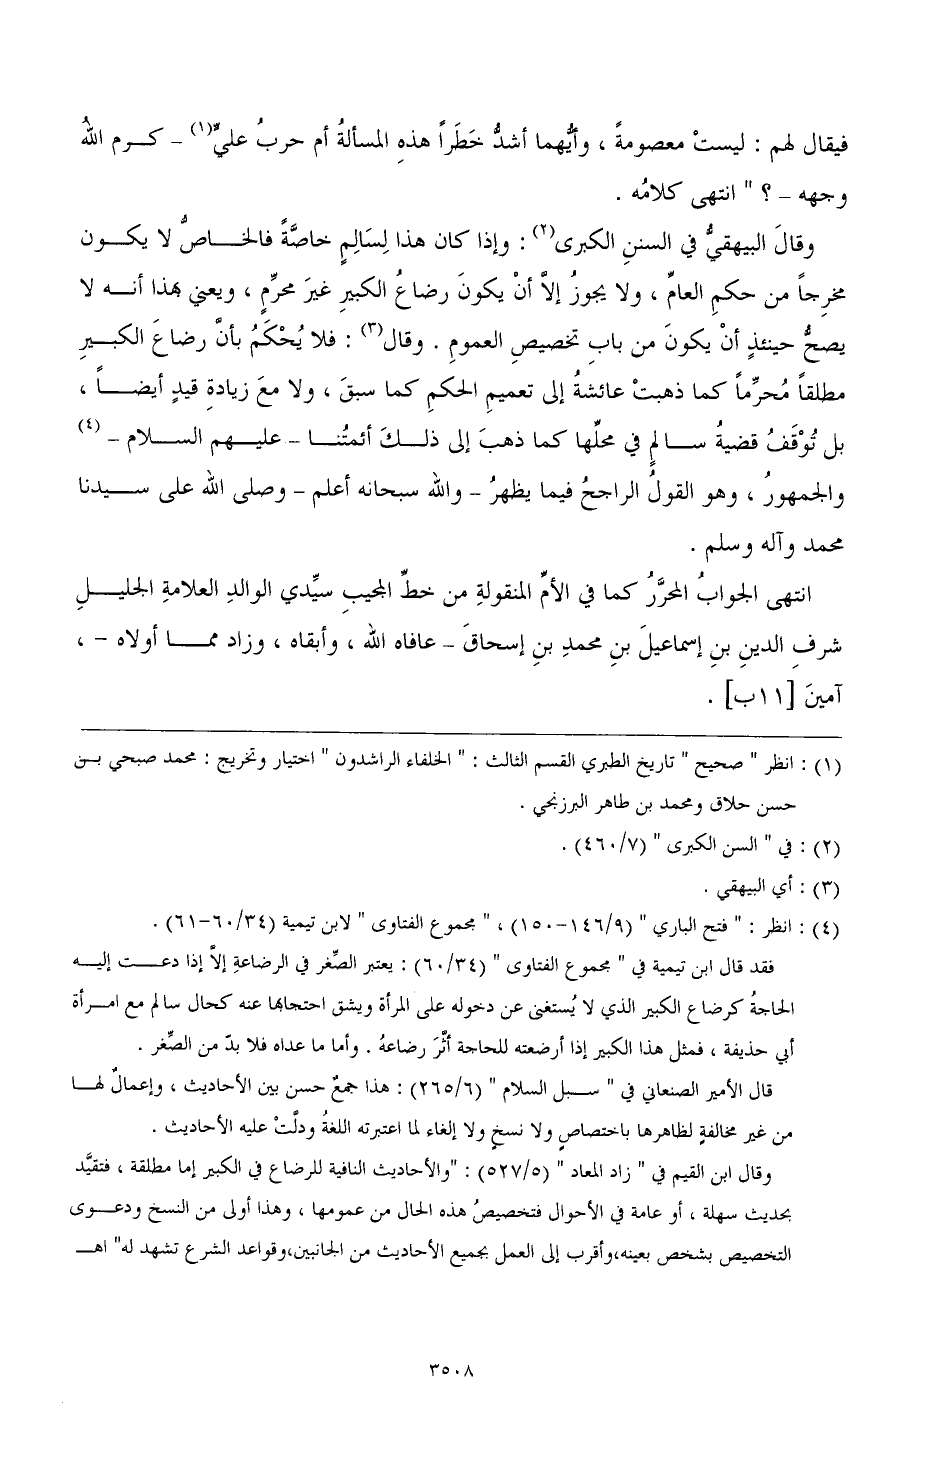 فيقال لهم : ليستْ معصومةً ، وأيُّهما أشدُّ خَطَراً هذهِ المسألةُ أم حربُ عليٍّ(١) – كرم اللهُ
وجهه – ؟ " انتهى كلامُه .
وقالَ البيهقيُّ في السننِ الكبرى(٢) : وإذا كان هذا لِسَالِمٍ خاصَّةً فالخاصُّ لا يكون
مخرجاً من حكمِ العامِّ ، ولا يجوزُ إلاَّ أنْ يكونَ رضاعُ الكبيرِ غيرَ محرِّمٍ ، ويعني بهذا أنه لا
يصحُّ حينئذٍ أنْ يكونَ من بابِ تخصيصِ العمومِ . وقال(٣) : فلا يُحْكَمُ بأنَّ رضاعَ الكبيرِ
مطلقاً مُحرِّماً كما ذهبتْ عائشةُ إلى تعميمِ الحكمِ كما سبقَ ، ولا معَ زيادةِ قيدٍ أيضاً ،
بل تُوْقَفُ قضيةُ سالمٍ في محلِّها كما ذهبَ إلى ذلكَ أئمتُنا – عليهم السلام – (٤)
والجمهورُ ، وهو القولُ الراجحُ فيما يظهرُ – والله سبحانه أعلم – وصلى الله على سيدنا
محمد وآله وسلم .
انتهى الجوابُ المحرَّرُ كما في الأمِّ المنقولةِ من خطِّ المجيبِ سيِّدي الوالدِ العلامةِ الجليلِ
شرفِ الدينِ بنِ إسماعيلَ بنِ محمدِ بنِ إسحاقَ – عافاه الله ، وأبقاه ، وزاد مما أولاه – ،
آمينَ [١١ب] .
(١) : انظر " صحيح " تاريخ الطبري القسم الثالث : " الخلفاء الراشدون " اختيار وتخريج : محمد صبحي بن
حسن حلاق ومحمد بن طاهر البرزنجي .
(٢) : في " السن الكبرى " (٤٦٠/٧) .
(٣) : أي البيهقي .
(٤) : انظر : " فتح الباري " (١٤٦/٩–١٥٠) ، " مجموع الفتاوى " لابن تيمية (٦٠/٣٤–٦١) .
فقد قال ابن تيمية في " مجموع الفتاوى " (٦٠/٣٤) : يعتبر الصِّغر في الرضاعةِ إلاَّ إذا دعت إليه
الحاجةُ كرضاع الكبير الذي لا يُستغنى عن دخوله على المرأة ويشق احتجابها عنه كحال سالم مع امرأة
أبي حذيفة ، فمثل هذا الكبير إذا أرضعته للحاجة أثَّرَ رضاعهُ . وأما ما عداه فلا بدّ من الصِّغر .
قال الأمير الصنعاني في " سبل السلام " (٢٦٥/٦) : هذا جمعٌ حسن بين الأحاديث ، وإعمالٌ لها
من غير مخالفةٍ لظاهرها باختصاصٍ ولا نسخٍ ولا إلغاء لما اعتبرته اللغةُ ودلَّتْ عليه الأحاديث .
وقال ابن القيم في " زاد المعاد " (٥٢٧/٥) : "والأحاديث النافية للرضاع في الكبير إما مطلقة ، فتقيَّد
بحديث سهلة ، أو عامة في الأحوال فتخصيصُ هذه الحال من عمومها ، وهذا أولى من النسخ ودعوى
التخصيص بشخص بعينه،وأقرب إلى العمل بجميع الأحاديث من الجانبين،وقواعد الشرع تشهد له" اهـ
٣٥٠٨